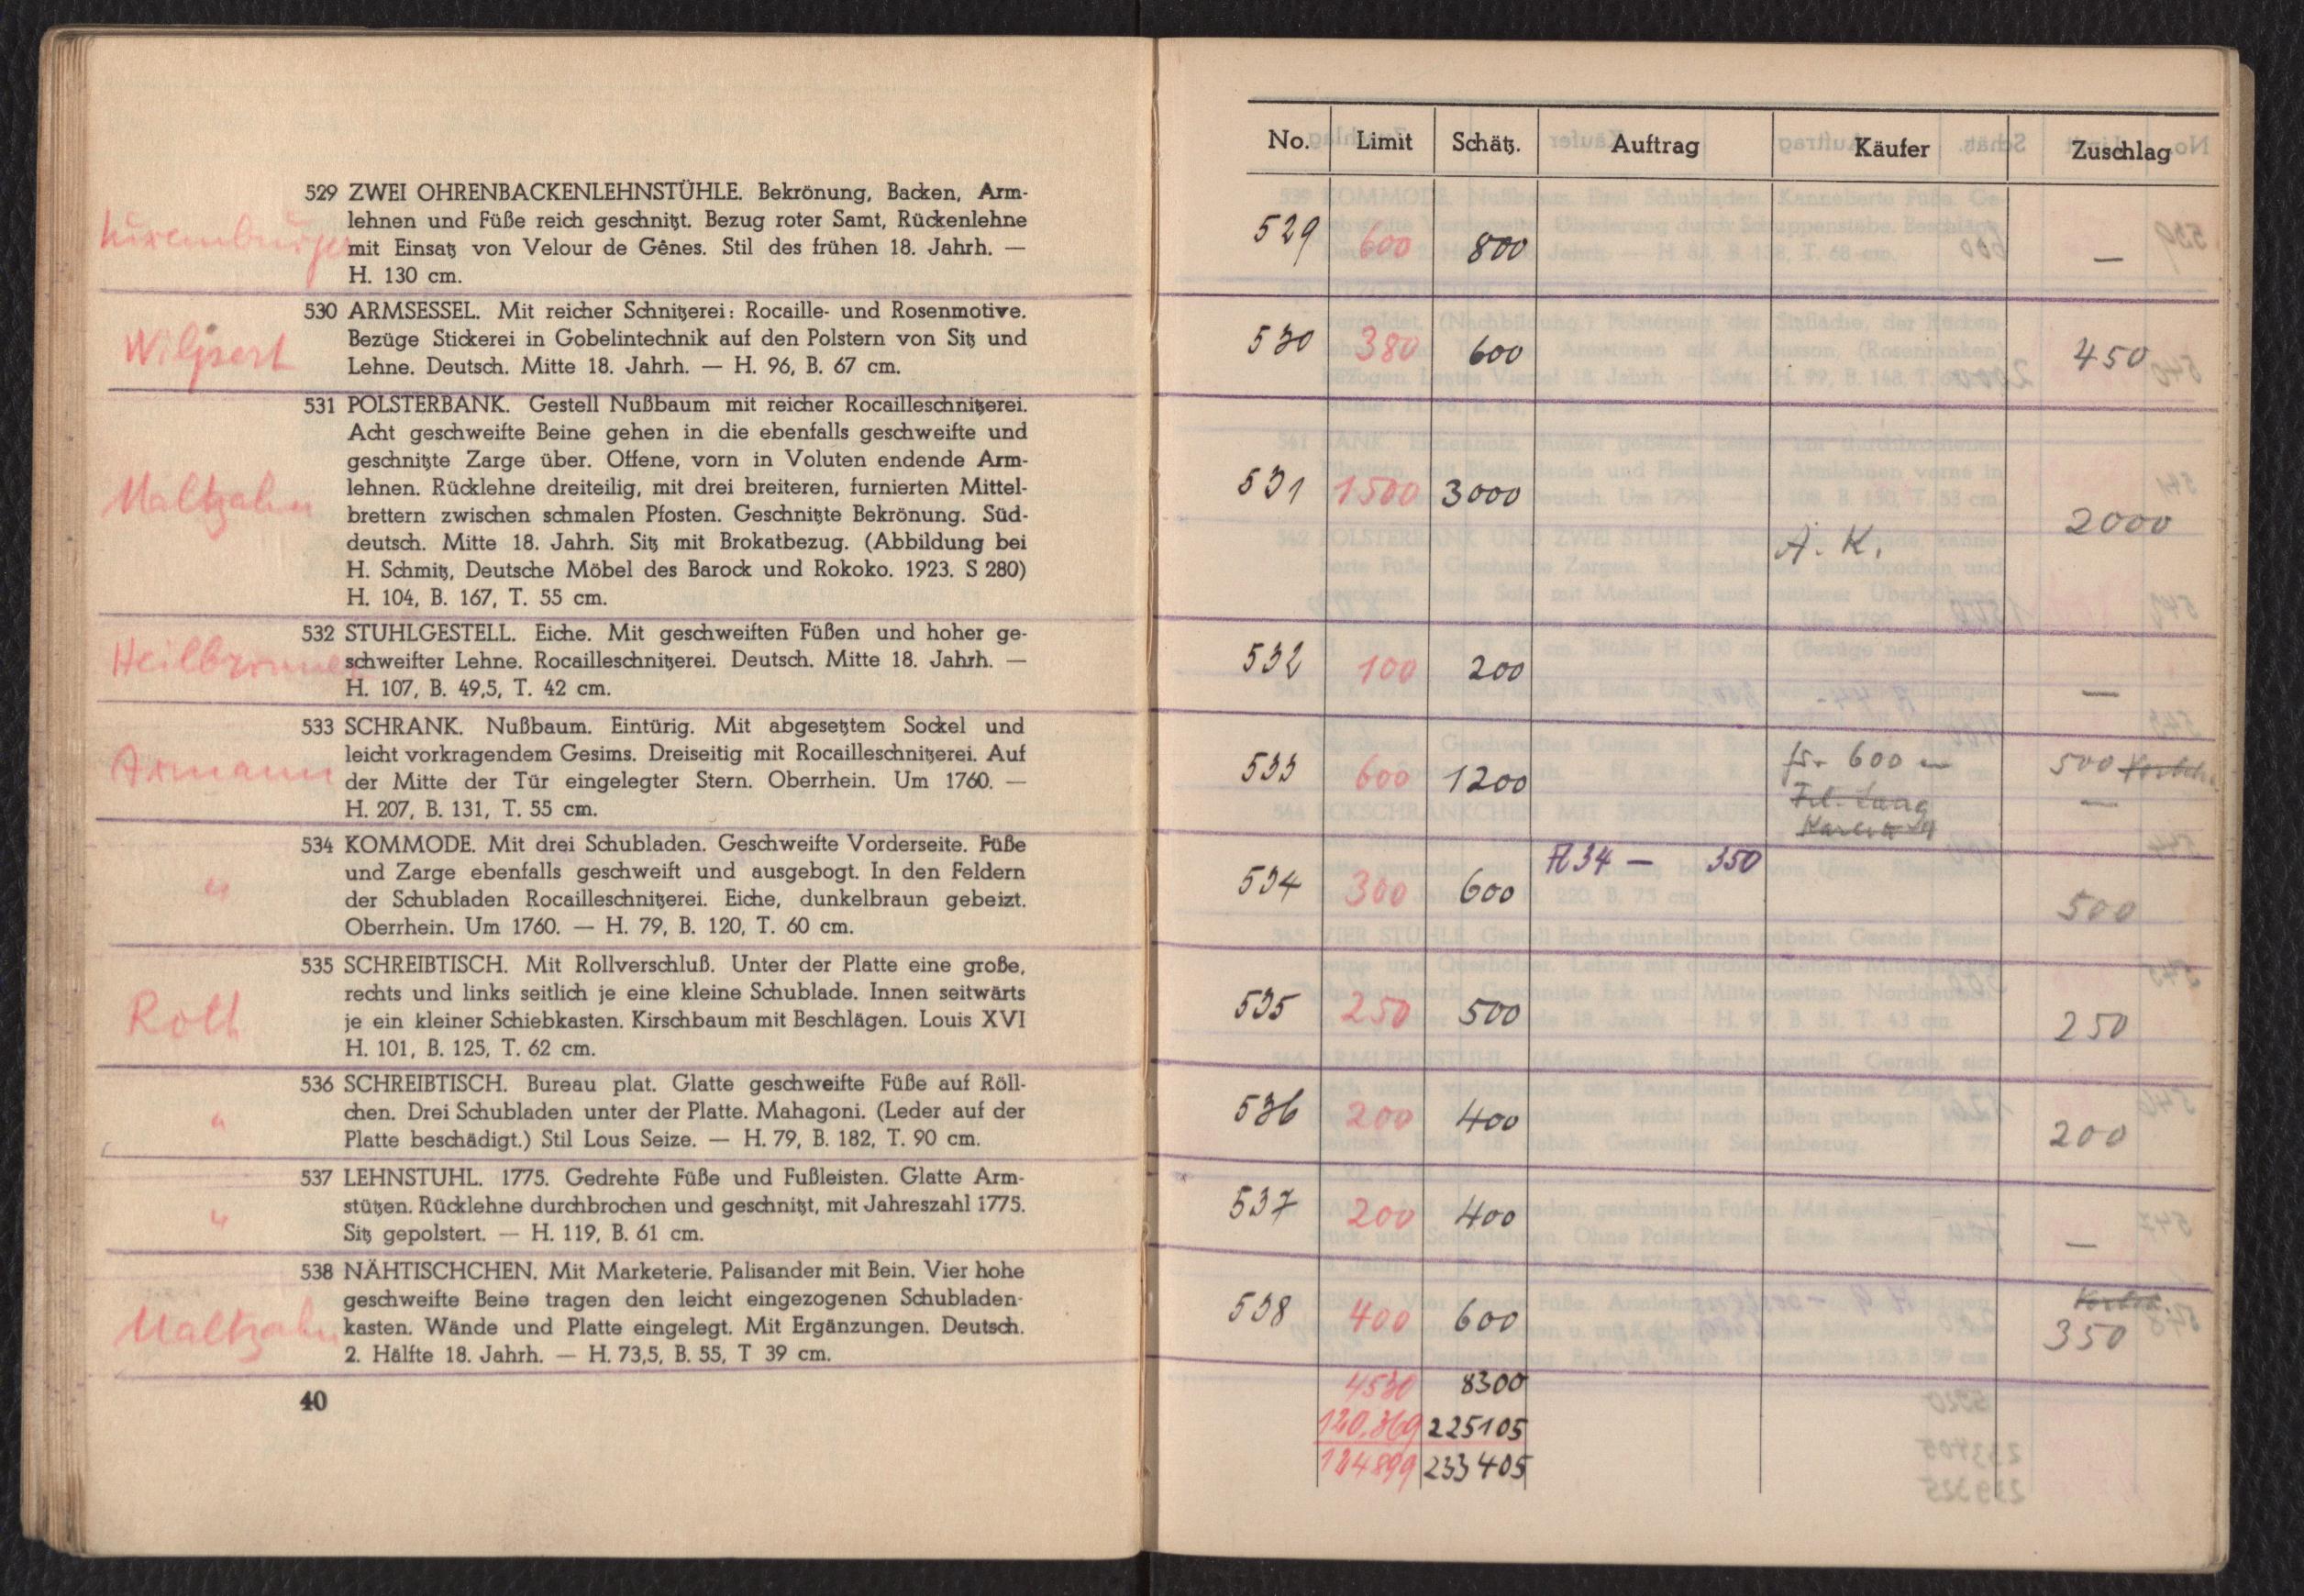 529 ZWEI OHRENBACKENLEHNSTÜHLE. Bekrönung, Backen, Arm-
lehnen und Füße reich geschnitzt. Bezug roter Samt, Rückenlehne
Luxemburger
mit Einsatz von Velour de Gênes. Stil des frühen 18. Jahrh. —
H. 130 cm.
530 ARMSESSEL. Mit reicher Schnitzerei: Rocaille- und Rosenmotive.
Wilpert
Bezüge Stickerei in Gobelintechnik auf den Polstern von Sitz und
Lehne. Deutsch. Mitte 18. Jahrh. — H. 96, B. 67 cm.
531 POLSTERBANK. Gestell Nußbaum mit reicher Rocailleschnitzerei.
Acht geschweifte Beine gehen in die ebenfalls geschweifte und
geschnitzte Zarge über. Offene, vorn in Voluten endende Arm-
Maltzahn
lehnen. Rücklehne dreiteilig, mit drei breiteren, furnierten Mittel-
brettern zwischen schmalen Pfosten. Geschnitzte Bekrönung. Süd-
deutsch. Mitte 18. Jahrh. Sitz mit Brokatbezug. (Abbildung bei
H. Schmitz, Deutsche Möbel des Barock und Rokoko. 1923. S 280)
H. 104, B. 167, T. 55 cm.
532 STUHLGESTELL. Eiche. Mit geschweiften Füßen und hoher ge-
Heilbronner
schweifter Lehne. Rocailleschnitzerei. Deutsch. Mitte 18. Jahrh. —
H. 107, B. 49,5, T. 42 cm.
533 SCHRANK. Nußbaum. Eintürig. Mit abgesetztem Sockel und
leicht vorkragendem Gesims. Dreiseitig mit Rocailleschnitzerei. Auf
Axmann
der Mitte der Tür eingelegter Stern. Oberrhein. Um 1760. —
H. 207, B. 131, T. 55 cm.
534 KOMMODE. Mit drei Schubladen. Geschweifte Vorderseite. Füße
und Zarge ebenfalls geschweift und ausgebogt. In den Feldern
"
der Schubladen Rocailleschnitzerei. Eiche, dunkelbraun gebeizt.
Oberrhein. Um 1760. — H. 79, B. 120, T. 60 cm.
535 SCHREIBTISCH. Mit Rollverschluß. Unter der Platte eine große,
rechts und links seitlich je eine kleine Schublade. Innen seitwärts
Roth
je ein kleiner Schiebkasten. Kirschbaum mit Beschlägen. Louis XVI
H. 101, B. 125, T. 62 cm.
536 SCHREIBTISCH. Bureau plat. Glatte geschweifte Füße auf Röll-
"
chen. Drei Schubladen unter der Platte. Mahagoni. (Leder auf der
Platte beschädigt.) Stil Lous Seize. — H. 79, B. 182, T. 90 cm.
537 LEHNSTUHL. 1775. Gedrehte Füße und Fußleisten. Glatte Arm-
"
stützen. Rücklehne durchbrochen und geschnitzt, mit Jahreszahl 1775.
Sitz gepolstert. — H. 119, B. 61 cm.
538 NÄHTISCHCHEN. Mit Marketerie. Palisander mit Bein. Vier hohe
geschweifte Beine tragen den leicht eingezogenen Schubladen-
Maltzahn
kasten. Wände und Platte eingelegt. Mit Ergänzungen. Deutsch.
2. Hälfte 18. Jahrh. — H. 73,5, B. 55, T 39 cm.
40
No. Limit Schätz. Auftrag Käufer Zuschlag
529 600 800 —
530 380 600 450
531 1500 3000 2000
A. K.
532 100 200 —
533 600 1200 600 500
Frl. Lang —
A 34 — 350
534 300 600 500
535 250 500 250
536 200 400 200
537 200 400 —
538 400 600 350
4530 8300
120.369 225105
124899 233405